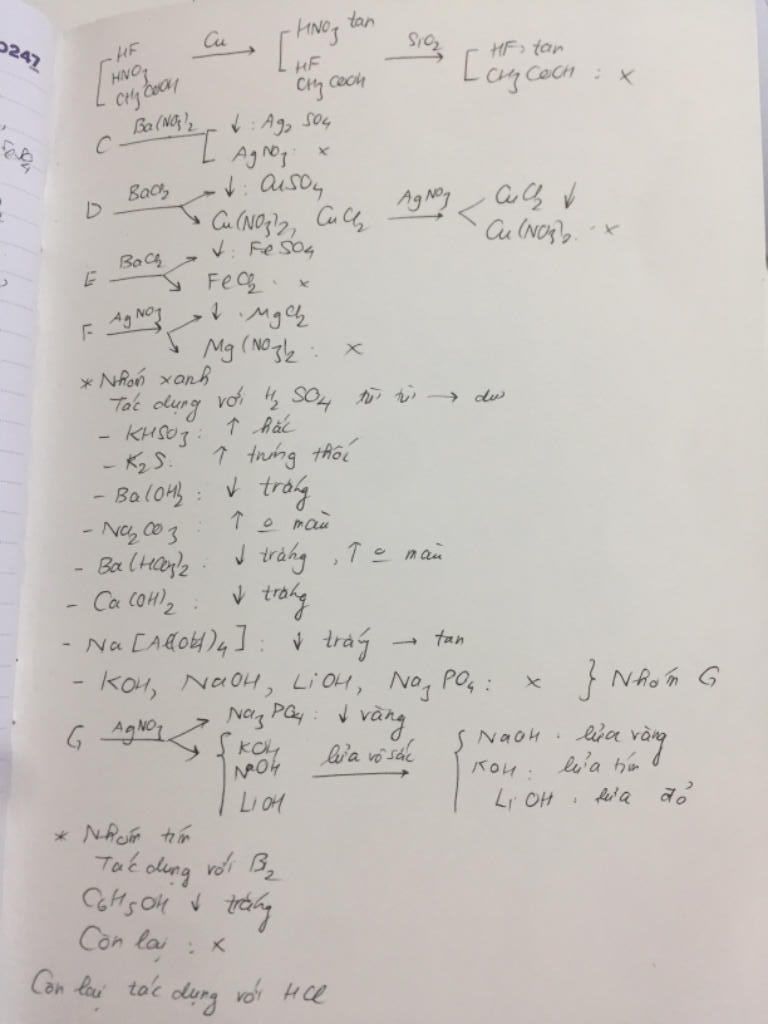 O247
FeSO4
[ HF HNO3 CH3COOH —Cu→ [ HNO3 tan HF CH3COOH —SiO2→ [ HF: tan CH3COOH : x
C —Ba(NO3)2→ [ ↓ : Ag2SO4
AgNO3 : x
D —BaCl2→ ↓ : CuSO4
Cu(NO3)2, CuCl2 —AgNO3→ < CuCl2 ↓
Cu(NO3)2 : x
E —BaCl2→ ↓ : FeSO4
FeCl2 . x
F —AgNO3→ ↓ . MgCl2
Mg(NO3)2 : x
* Nhóm xanh
Tác dụng với H2SO4 từ từ → dư
- KHSO3 : ↑ hắc
- K2S : ↑ trứng thối
- Ba(OH)2 : ↓ trắng
- Na2CO3 : ↑ o màu
- Ba(HCO3)2 : ↓ trắng , ↑ o màu
- Ca(OH)2 : ↓ trắng
- Na[Al(OH)4] : ↓ trắng → tan
- KOH, NaOH, LiOH, Na3PO4 : x } Nhóm G
G —AgNO3→ Na3PO4 : ↓ vàng
{ KOH NaOH LiOH —lửa vô sắc→ { NaOH . lửa vàng
KOH : lửa tím
LiOH . lửa đỏ
* Nhóm tím
Tác dụng với B2
C6H5OH ↓ trắng
Còn lại : x
Còn lại tác dụng với HCl